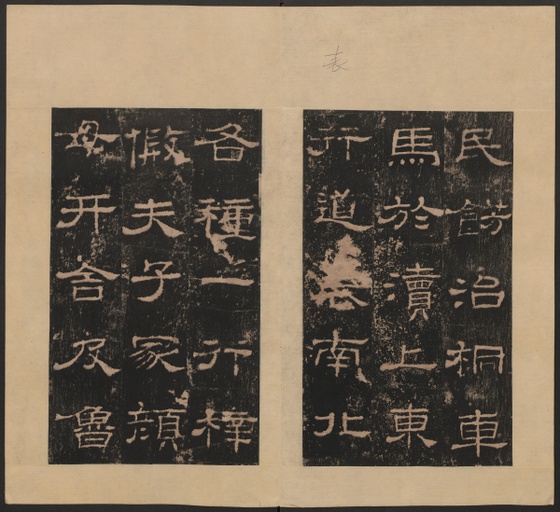 表
民餝治桐車
馬於瀆上東
行道表南北
各種一行梓
假夫子冢顏
母开舍及魯